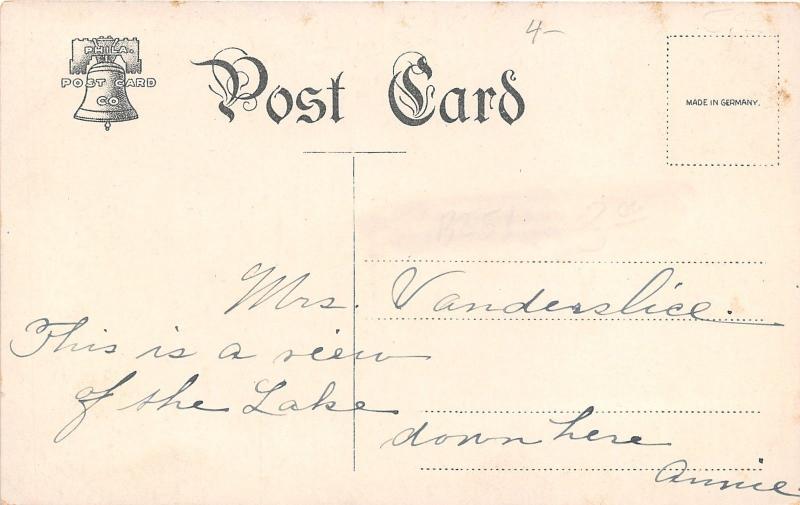 4-
PHILA.
POST CARD
CO
Post Card
MADE IN GERMANY.
Mrs. Vanderslice.
This is a view
of the Lake
down here
Annie